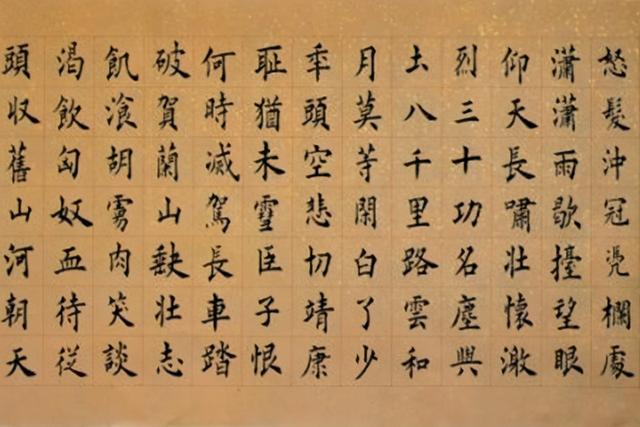 怒髮沖冠凴欄處
瀟瀟雨歇擡望眼
仰天長嘯壯懷激
烈三十功名塵與
土八千里路雲和
月莫等閑白了少
年頭空悲切靖康
耻猶未雪臣子恨
何時滅駕長車踏
破賀蘭山缺壯志
飢湌胡虜肉笑談
渴飲匈奴血待從
頭收舊山河朝天